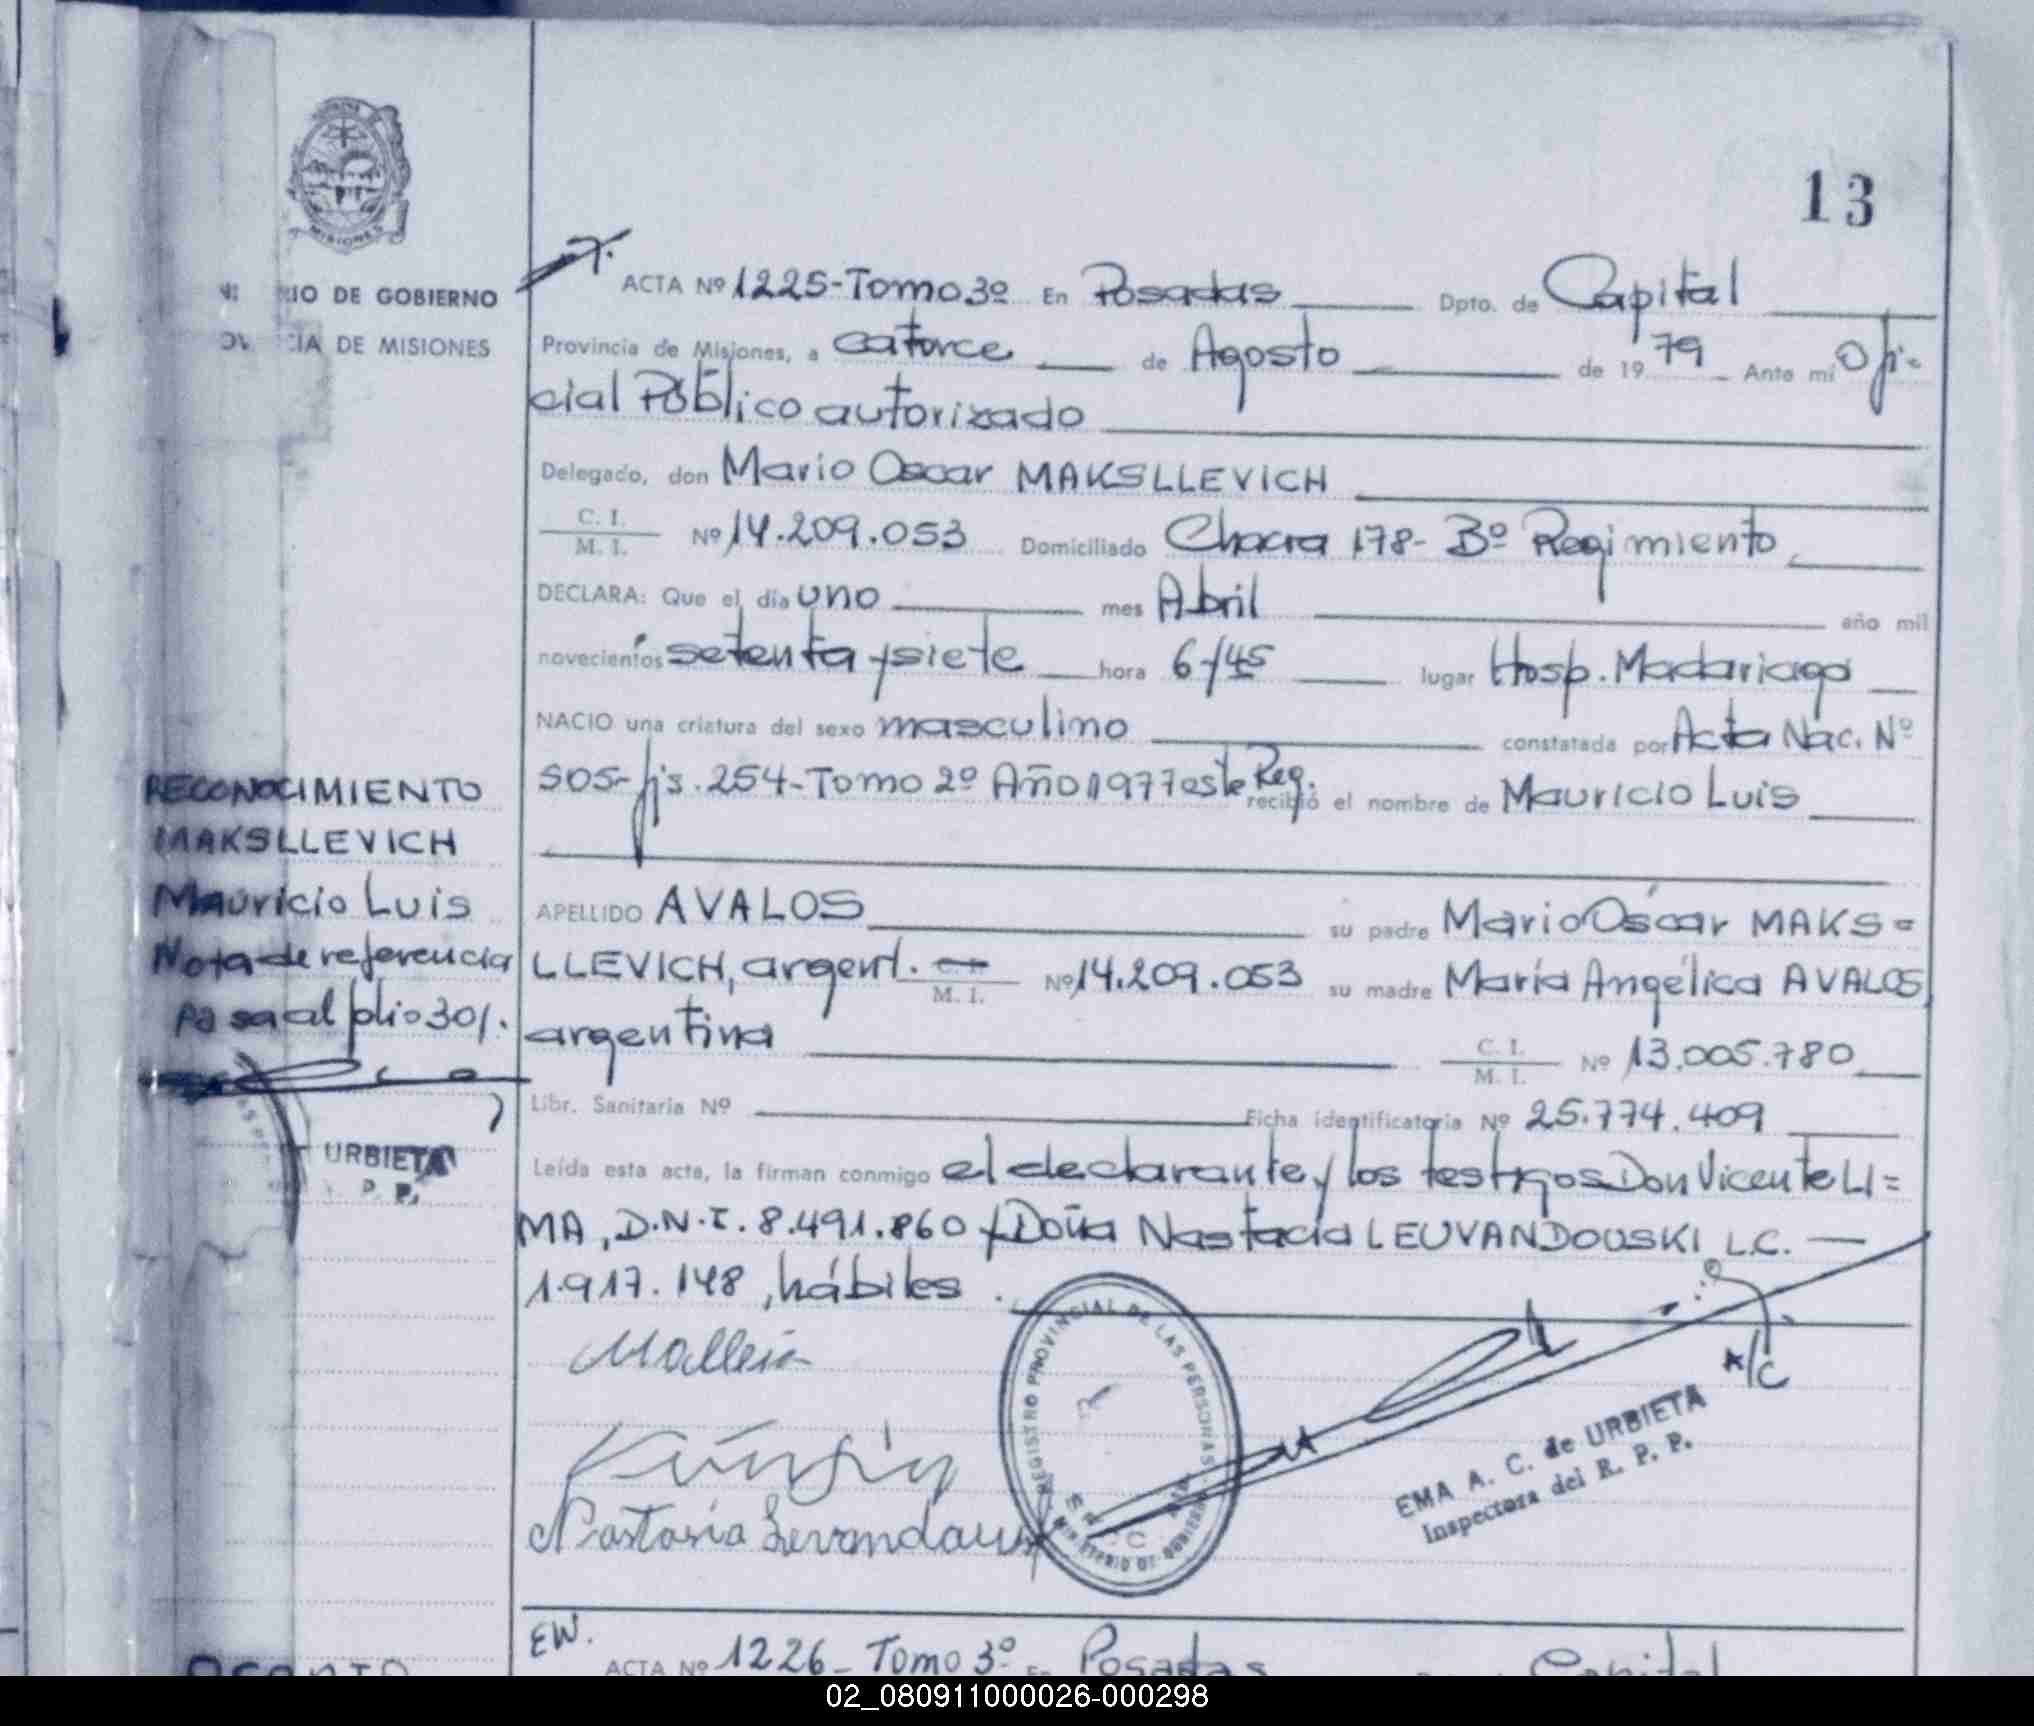 MISIONES
IO DE GOBIERNO
CIA DE MISIONES
13
ACTA Nº 1225-Tomo 3º En Posadas Dpto. de Capital
Provincia de Misiones, a catorce de Agosto de 1979 Ante mi Ofi-
cial Público autorizado
Delegado, don Mario Oscar MAKSLLEVICH
C. I. / M. I. Nº 14.209.053 Domiciliado Chacra 178- Bº Regimiento
DECLARA: Que el día uno mes Abril año mil
novecientos setenta y siete hora 6/45 lugar Hosp. Madariaga
NACIO una criatura del sexo masculino constatada por Acta Nac. Nº
505- fjs. 254-Tomo 2º Año 1977 este Reg. recibió el nombre de Mauricio Luis
APELLIDO AVALOS su padre Mario Oscar MAKS=
LLEVICH, argent. C. I. / M. I. Nº 14.209.053 su madre María Angélica AVALOS
argentina C. I. / M. I. Nº 13.005.780
Libr. Sanitaria Nº Ficha identificatoria Nº 25.774.409
Leída esta acta, la firman conmigo el declarante y los testigos Don Vicente LI=
MA, D.N.I. 8.491.860 y Doña Nastacia LEUVANDOUSKI L.C.
1.917.148, hábiles.
RECONOCIMIENTO
MAKSLLEVICH
Mauricio Luis
Nota de referencia
pasa al folio 301.
URBIETA
P. P.
REGISTRO PROVINCIAL DE LAS PERSONAS
MINISTERIO DE GOBIERNO
A/C
EMA A. C. de URBIETA
Inspectora del R. P. P.
EW.
ACTA Nº 1226- Tomo 3º En Posadas Capital
02_080911000026-000298